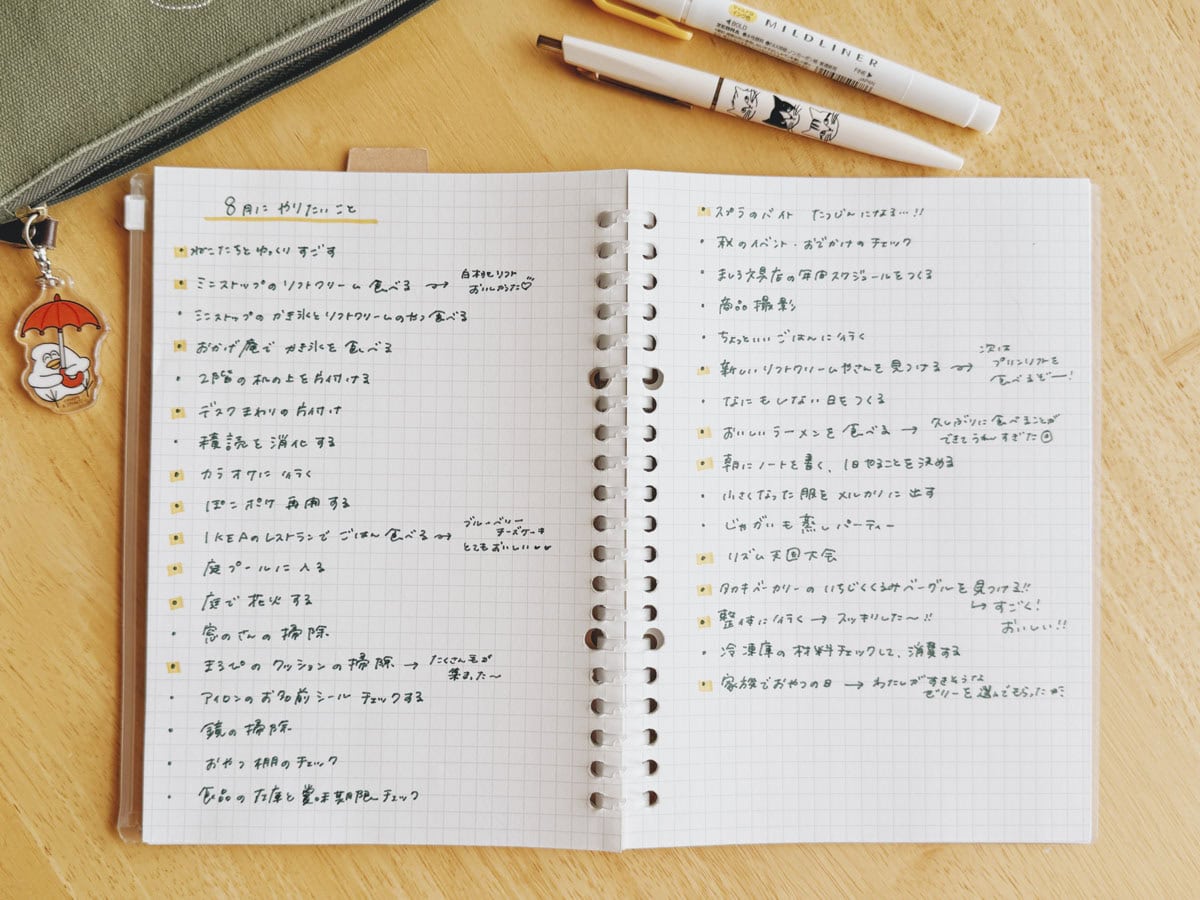 MILDLINER
BOLD
ZEBRA
FINE
JAPAN
8月に やりたいこと
ねこたちと ゆっくり すごす
ミニストップの ソフトクリーム 食べる →
おいしかった♡
ミニストップの かき氷とソフトクリームのやつ 食べる
おかげ庵で かき氷を 食べる
2階の 机の上を 片付ける
デスクまわりの 片付け
積読を 消化する
カラオケに 行く
ぽこポケ 再開する
IKEAのレストランで ごはん 食べる →
ブルーベリー
チーズケーキ
とてもおいしい
庭プールに 入る
庭で 花火する
窓のさんの 掃除
まるぴの クッションの 掃除 →
たくさん毛が
集まった〜
アイロンの お名前シール チェックする
鏡の 掃除
おやつ棚の チェック
食品の 在庫と 賞味期限 チェック
スプラのバイト たつじんになる…!!
秋のイベント・おでかけの チェック
ましろ文具店の 年間スケジュールをつくる
商品 撮影
ちょっといい ごはんに 行く
新しい ソフトクリームやさんを 見つける →
次は
プリンソフトを
食べるぞー!
なにもしない 日をつくる
おいしい ラーメンを 食べる →
久しぶりに 食べることが
できて うれしすぎた
朝に ノートを 書く、1日やることを 決める
小さくなった 服を メルカリに 出す
じゃがいも 蒸し パーティー
リズム天国大会
タカキベーカリーの いちじくくるみベーグルを 見つける!!
すごく!
おいしい!!
整体に 行く → スッキリした〜!!
冷凍庫の 材料チェックして、消費する
家族で おやつの日 →
わたしが すきそうな
ゼリーを 選んでもらった